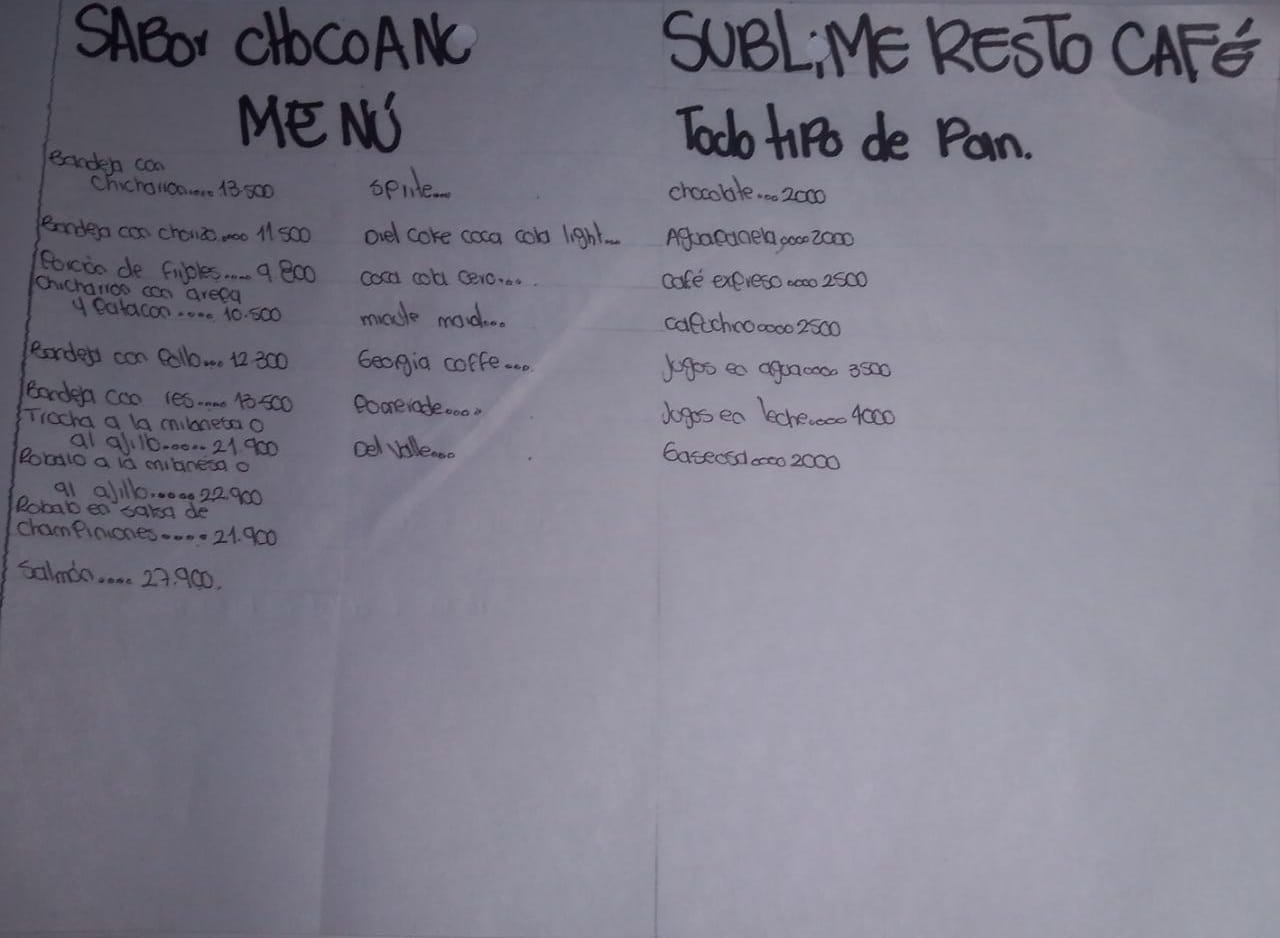 SABOR CHOCOANO
MENÚ
Bandeja con
chicharron.... 13.500
Bandeja con chorizo.... 11.500
Porción de frijoles.... 9.800
chicharron con arepa
y Patacon.... 10.500
Bandeja con Pollo... 12.300
Bandeja con res.... 13.500
Trucha a la milanesa o
al ajillo..... 21.900
Robalo a la milanesa o
al ajillo..... 22.900
Robalo en salsa de
champiniones.... 21.900
Salmón.... 27.900.
Sprite...
Diet coke coca cola light...
coca cola cero....
minute maid...
Georgia coffe....
Powerade....
Del valle...
SUBLIME RESTO CAFÉ
Todo tipo de Pan.
chocolate... 2000
Aguapanela.... 2000
café expreso.... 2500
capuchino.... 2500
Jugos en agua.... 3500
Jugos en leche.... 4000
Gaseosa.... 2000